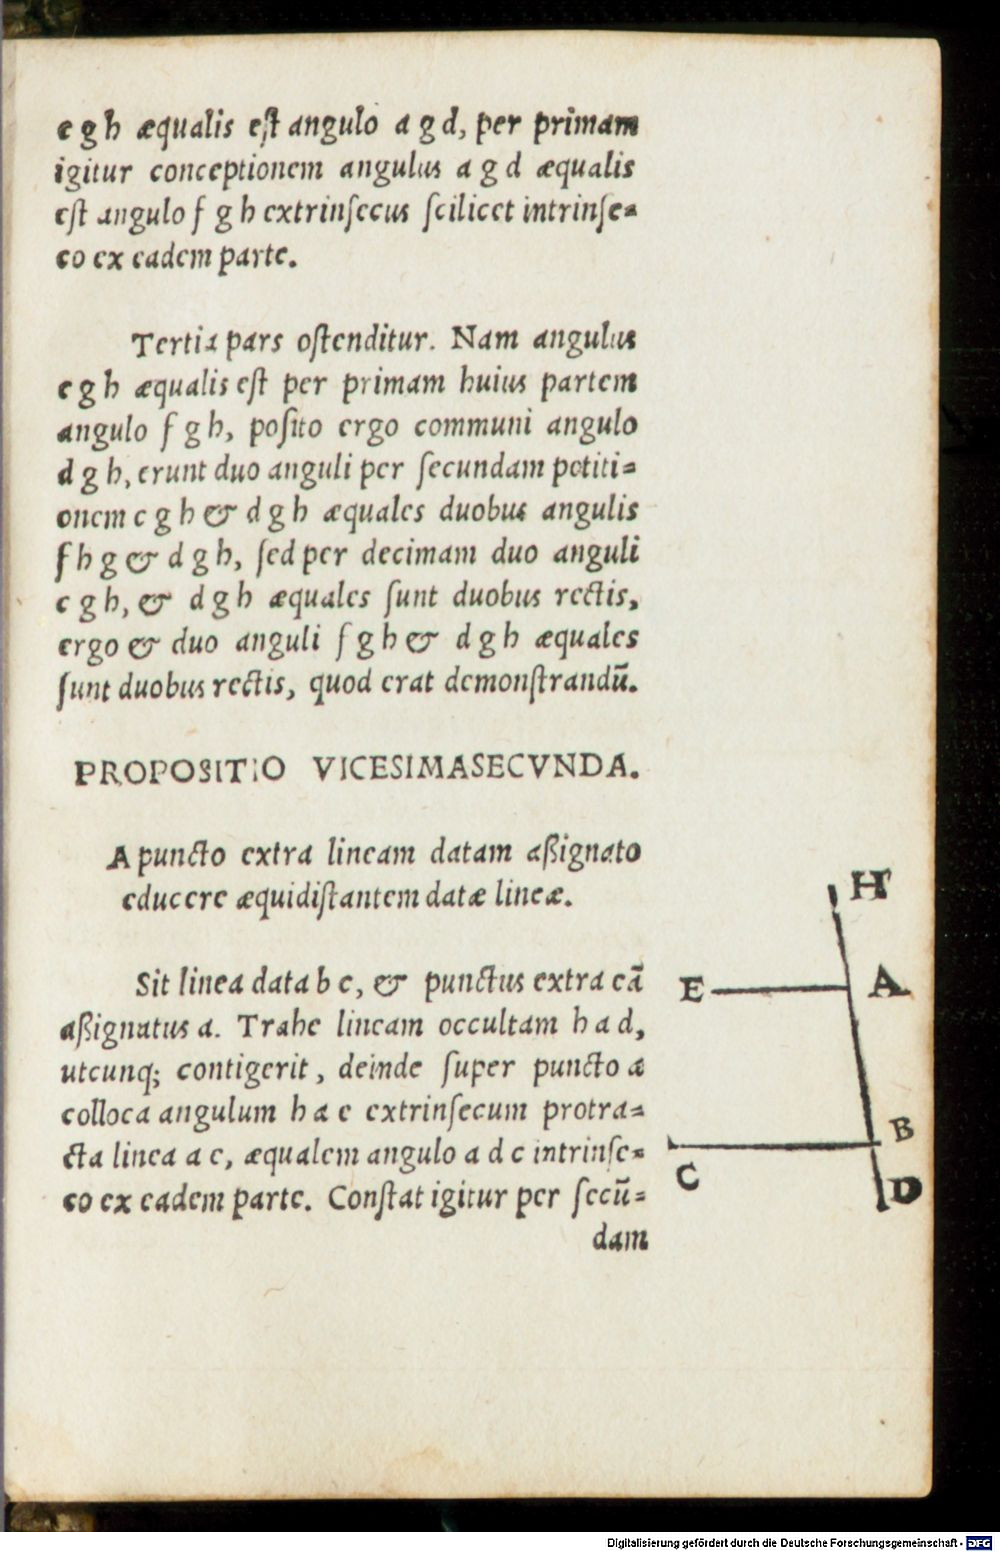 e g h æqualis eſt angulo a g d, per primam
igitur conceptionem angulus a g d æqualis
eſt angulo f g h extrinſecus ſcilicet intrinſe=
co ex eadem parte.
Tertia pars oſtenditur. Nam angulus
e g h æqualis eſt per primam huius partem
angulo f g h, poſito ergo communi angulo
d g h, erunt duo anguli per ſecundam petiti=
onem e g h & d g h æquales duobus angulis
f h g & d g h, ſed per decimam duo anguli
e g h, & d g h æquales ſunt duobus rectis,
ergo & duo anguli f g h & d g h æquales
ſunt duobus rectis, quod erat demonſtrandū.
PROPOSITIO VICESIMASECVNDA.
A puncto extra lineam datam aßignato
educere æquidiſtantem datæ lineæ.
Sit linea data b c, & punctus extra eā
aßignatus a. Trahe lineam occultam h a d,
utcunq; contigerit, deinde ſuper puncto a
colloca angulum h a e extrinſecum protra=
cta linea a e, æqualem angulo a d c intrinſe=
co ex eadem parte. Conſtat igitur per ſecū=
dam
H
E A
B
C D
Digitalisierung gefördert durch die Deutsche Forschungsgemeinschaft - DFG